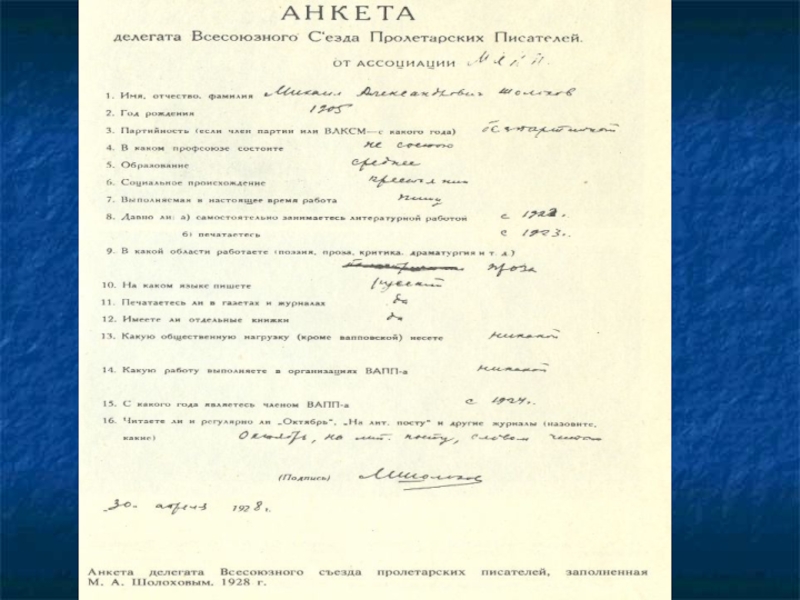 АНКЕТА
делегата Всесоюзного С'езда Пролетарских Писателей.
ОТ АССОЦИАЦИИ МАПП.
1. Имя, отчество. фамилия Михаил Александрович Шолохов
2. Год рождения 1905
3. Партийность (если член партии или ВЛКСМ—с какого года) безпартийной
4. В каком профсоюзе состоите не состою
5. Образование среднее
6. Социальное происхождение крестьянин
7. Выполняемая в настоящее время работа пишу
8. Давно ли: а) самостоятельно занимаетесь литературной работой с 1922 г.
б) печатаетесь с 1923 г.
9. В какой области работаете (поэзия, проза, критика. драматургия и т. д.)
проза
10. На каком языке пишете русский
11. Печатаетесь ли в газетах и журналах да
12. Имеете ли отдельные книжки да
13. Какую общественную нагрузку (кроме вапповской) несете никакой
14. Какую работу выполняете в организациях ВАПП-а никакой
15. С какого года являетесь членом ВАПП-а с 1924 г.
16. Читаете ли и регулярно ли „Октябрь", „На лит. посту" и другие журналы (назовите,
какие) Октябрь, на лит. посту, словом читаю
(Подпись) МШолохов
30. апреля 1928 г.
Анкета делегата Всесоюзного съезда пролетарских писателей, заполненная
М. А. Шолоховым. 1928 г.